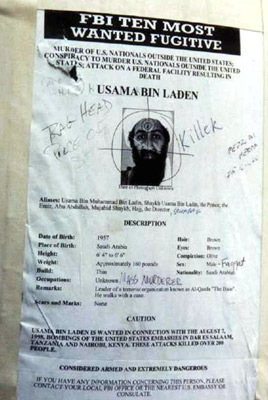 FBI TEN MOST
WANTED FUGITIVE
MURDER OF U.S. NATIONALS OUTSIDE THE UNITED STATES;
CONSPIRACY TO MURDER U.S. NATIONALS OUTSIDE THE UNITED
STATES; ATTACK ON A FEDERAL FACILITY RESULTING IN
DEATH
USAMA BIN LADEN
RAG HEAD
Killek
Date of Photograph Unknown
Aliases: Usama Bin Muhammad Bin Ladin, Shaykh Usama Bin Ladin, the Prince, the
Emir, Abu Abdallah, Mujahid Shaykh, Hajj, the Director,
DESCRIPTION
Date of Birth: 1957 Hair: Brown
Place of Birth: Saudi Arabia Eyes: Brown
Height: 6' 4" to 6' 6" Complexion: Olive
Weight: Approximately 160 pounds Sex: Male
Build: Thin Nationality: Saudi Arabian
Occupations: Unknown MASS MURDERER
Remarks: Leader of a terrorist organization known as Al-Qaeda "The Base"
He walks with a cane
Scars and Marks: None
CAUTION
USAMA BIN LADEN IS WANTED IN CONNECTION WITH THE AUGUST 7,
1998, BOMBINGS OF THE UNITED STATES EMBASSIES IN DAR ES SALAAM,
TANZANIA AND NAIROBI, KENYA. THESE ATTACKS KILLED OVER 200
PEOPLE.
CONSIDERED ARMED AND EXTREMELY DANGEROUS
IF YOU HAVE ANY INFORMATION CONCERNING THIS PERSON, PLEASE
CONTACT YOUR LOCAL FBI OFFICE OR THE NEAREST U.S. EMBASSY OR
CONSULATE.